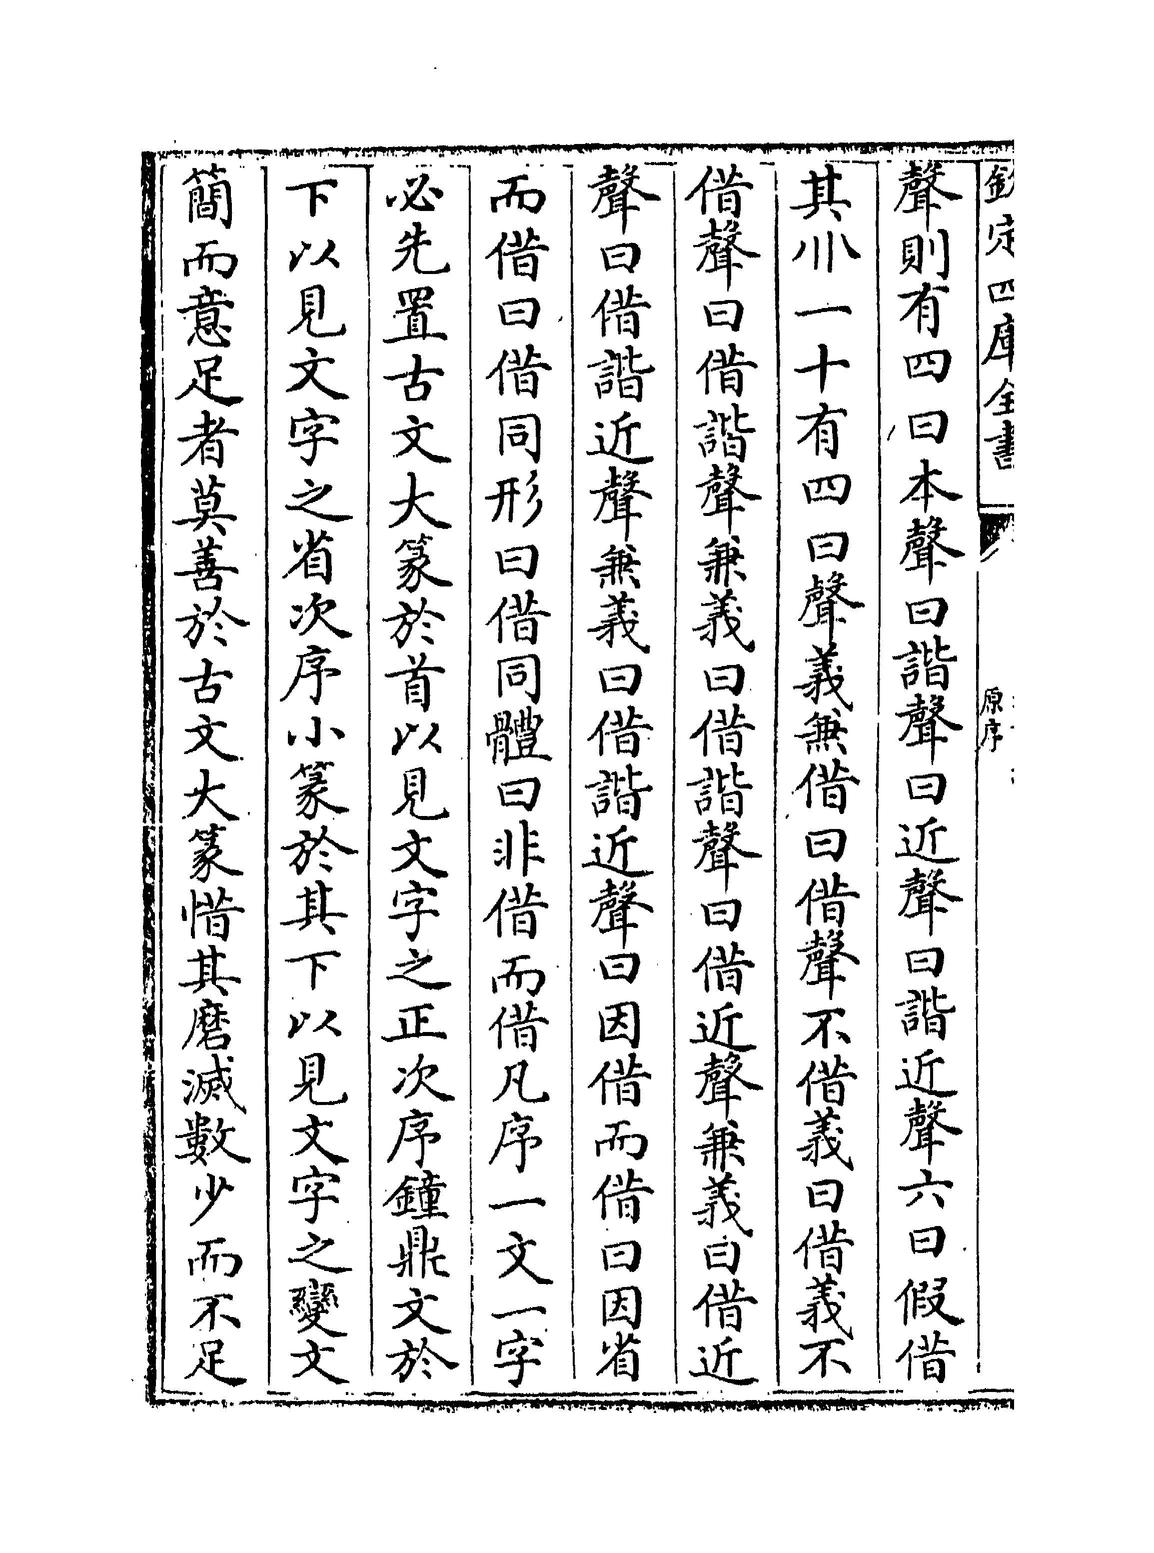 欽定四庫全書
原序
聲則有四曰本聲曰諧聲曰近聲曰諧近聲六曰假借
其𠔁一十有四曰聲義兼借曰借聲不借義曰借義不
借聲曰借諧聲兼義曰借諧聲曰借近聲兼義曰借近
聲曰借諧近聲兼義曰借諧近聲曰因借而借曰因省
而借曰借同形曰借同體曰非借而借凡序一文一字
必先置古文大篆於首以見文字之正次序鐘鼎文於
下以見文字之省次序小篆於其下以見文字之變文
簡而意足者莫善於古文大篆惜其磨滅數少而不足